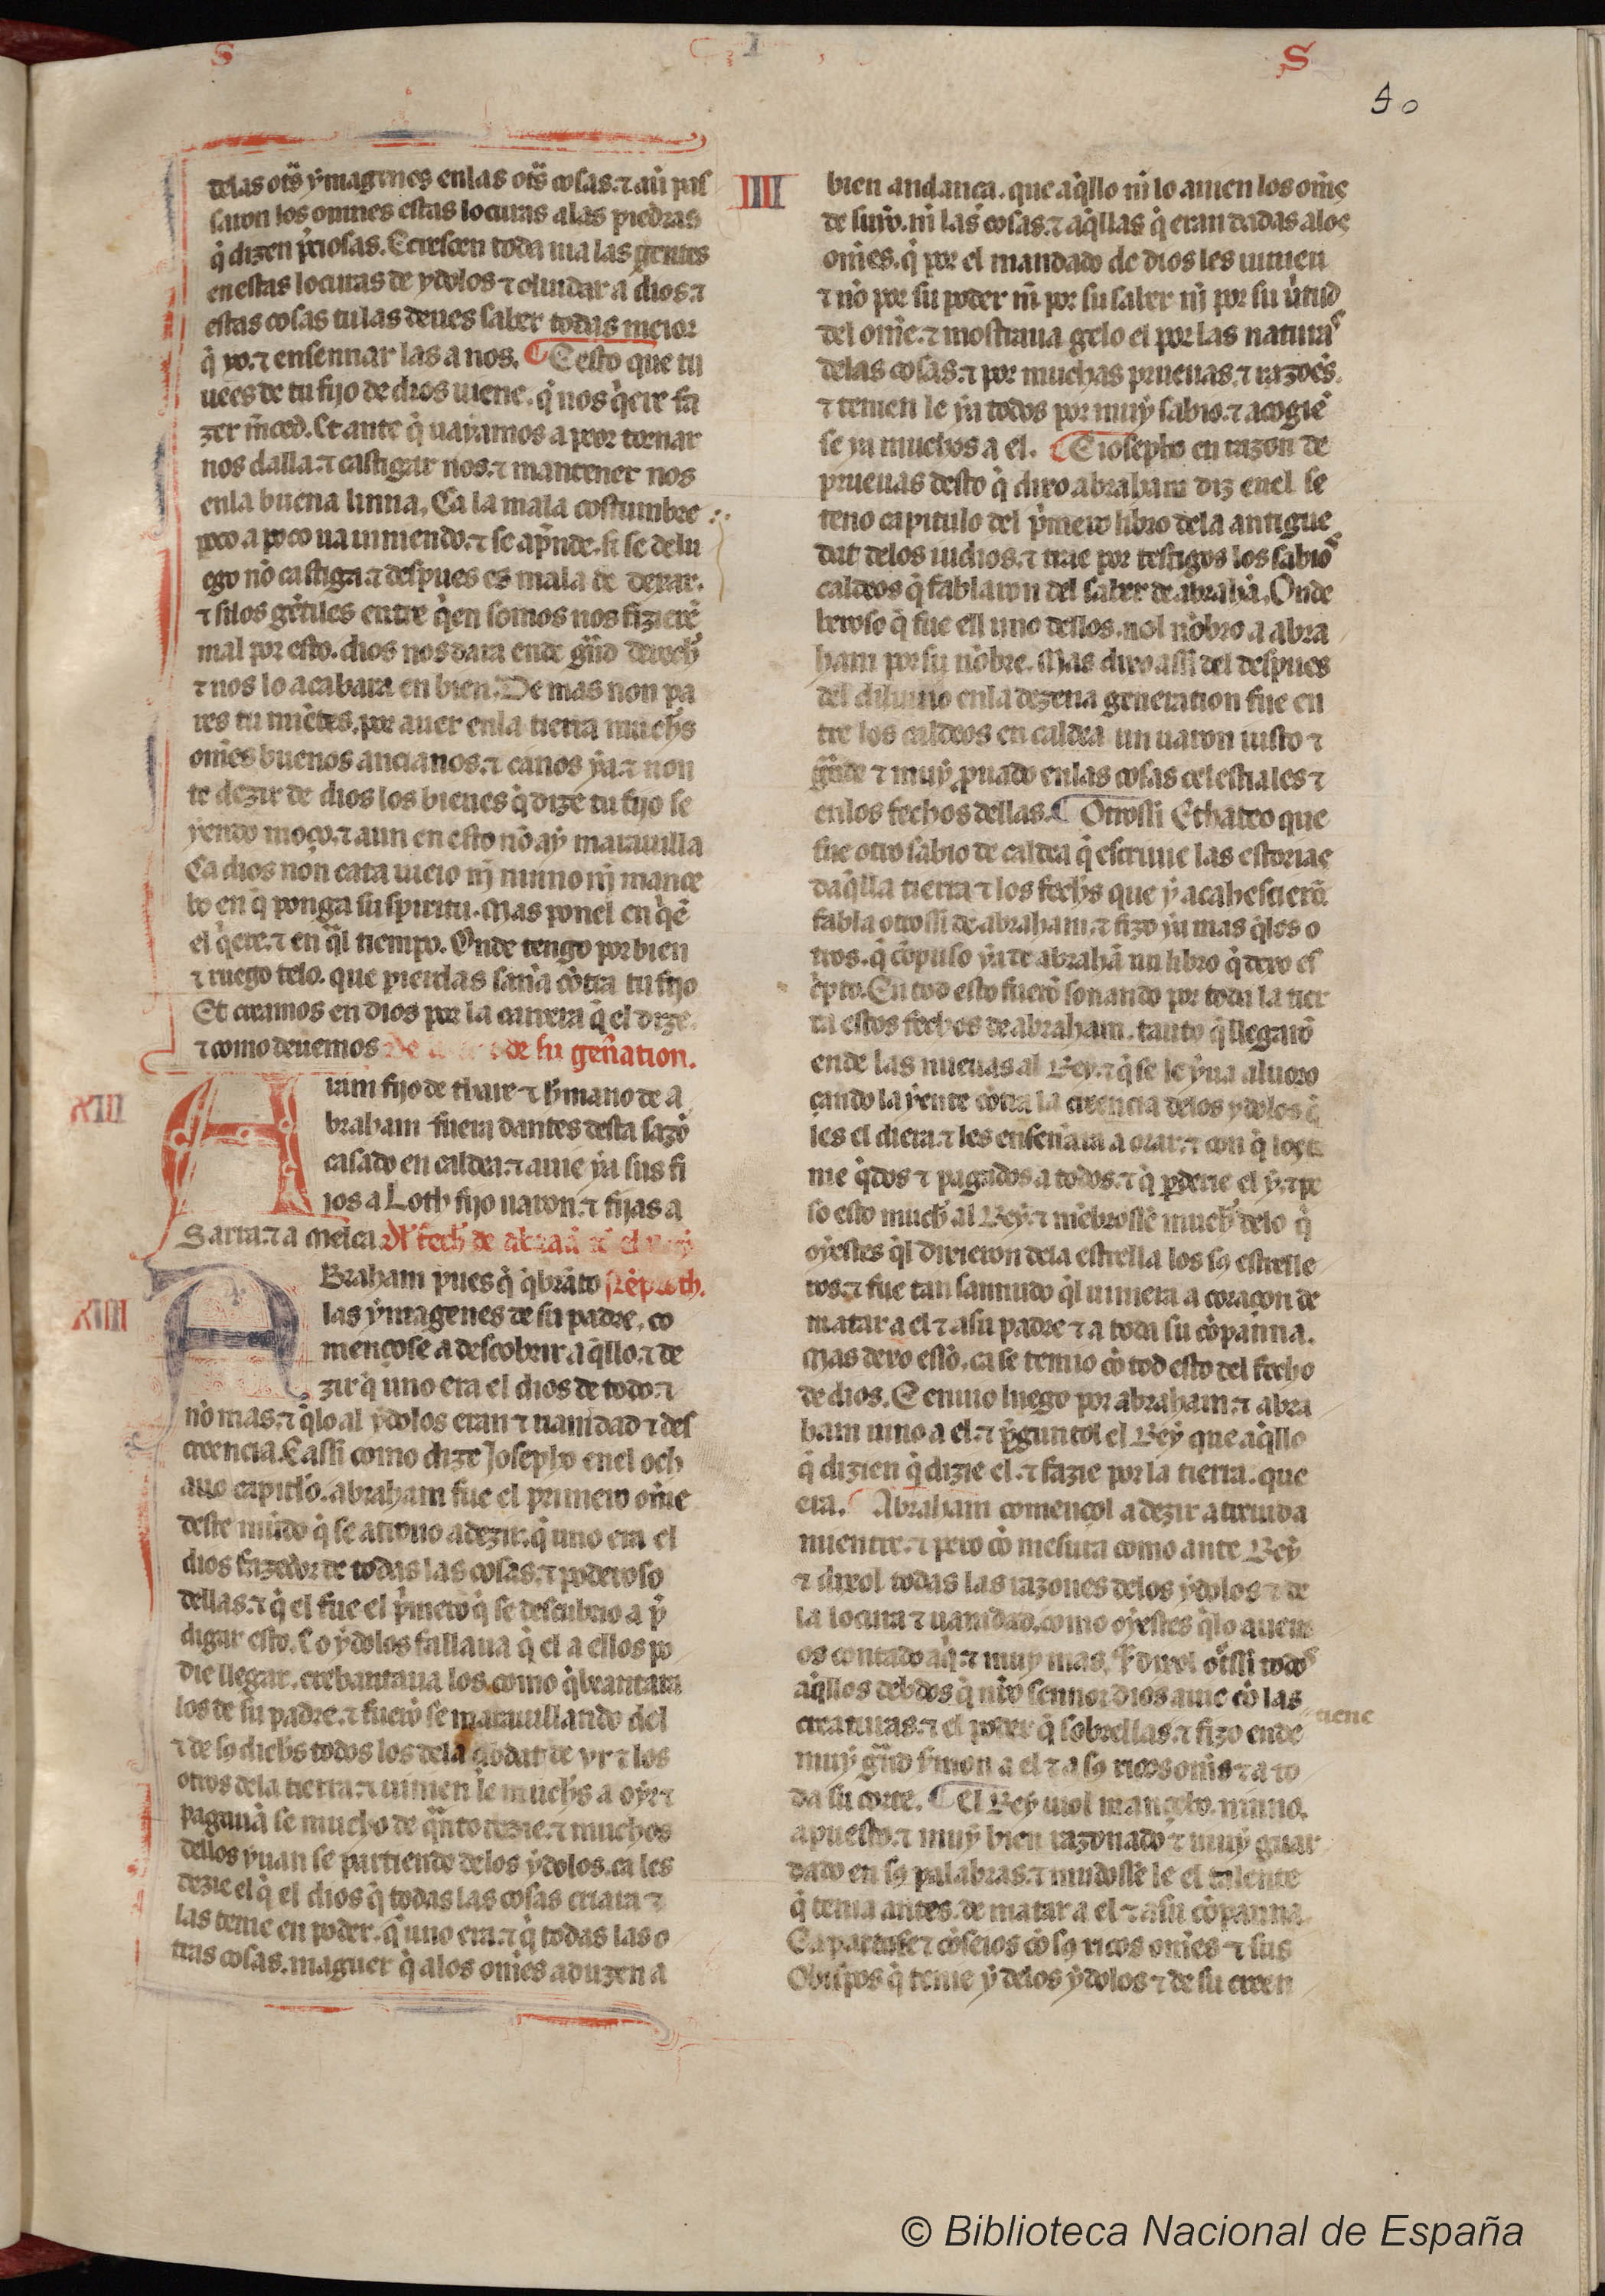 S
S
40
delas ot̃s ymagines enlas ot̃s cosas. ⁊ aũ pas
saron los omnes estas locuras alas piedras
q̃ dizen p̃ciosas. E crescen toda uia las gentes
en estas locuras de ydolos ⁊ oluidar a dios. ⁊
estas cosas tu las deues saber todas meior
q̃ yo. ⁊ ensennar las a nos. E esto que tu
uees de tu fijo de dios uiene. q̃ nos q̃ere fa
zer m̃ced. Et ante q̃ uayamos a peor tornar
nos dalla. ⁊ castigar nos. ⁊ mantener nos
enla buena linna. Ca la mala costumbre
poco a poco ua uiniendo. ⁊ se ap̃nde. si se delu
ego nõ castiga. ⁊ despues es mala de dexar.
⁊ silos gẽtiles entre q̃en somos nos fizierẽ
mal por esto. dios nos dara ende gñd derech̃
⁊ nos lo acabara en bien. De mas non pa
res tu miẽtes. por auer enla tierra much̃s
om̃es buenos ancianos. ⁊ canos ya. ⁊ non
te dezir de dios los bienes q̃ dize tu fijo se
yendo moço. ⁊ aun en esto nõ ay marauilla
Ca dios non cata uieio nj ninno nj mance
bo en q̃ ponga su spiritu. Mas ponel en q̃ẽ
el q̃ere. ⁊ en q̃l tiempo. Onde tengo por bien
⁊ ruego telo. que pierdas san̄a cõtra tu fijo
Et creamos en dios por la carrera q̃ el dize.
⁊ como deuemos de su geñation.
XIII
Aram fijo de thare ⁊ h̃mano de a
braham fuera dantes desta sazõ
casado en caldea. ⁊ auie ya sus fi
jos a Loth fijo uaron. ⁊ fijas a
Sarra. ⁊ a Melca Dl̃ fech̃ de abraã el rey
XIIII
ABraham pues q̃ q̃brãto
las ymagenes de su padre. co
mençose a descobrir aq̃llo. ⁊ de
zir q̃ uno era el dios de todo. ⁊
nõ mas. ⁊ q̃ lo al ydolos eran ⁊ uanidad ⁊ des
creencia. E assi como dize Josepho enel och
auo capitl̃o. abraham fue el primero om̃e
deste mũdo q̃ se atrouo a dezir. q̃ uno era el
dios fazedor de todas las cosas. ⁊ poderoso
dellas. ⁊ q̃ el fue el p̃mero q̃ se descubrio a p̃
digar esto. Lo ydolos fallaua q̃ el a ellos po
die llegar. crebantaua los. como q̃brantara
los de su padre. ⁊ fuerõ se marauillando del
⁊ de sꝯ dich̃s todos los dela çibdat de vr ⁊ los
otros dela tierra. ⁊ uinien le much̃s a oyr ⁊
pagauã se mucho de q̃nto dezie. ⁊ muchos
dellos yuan se partiendo delos ydolos. ca les
dezie el q̃ el dios q̃ todas las cosas criara ⁊
las tenie en poder. q̃ uno era. ⁊ q̃ todas las o
tras cosas. maguer q̃ alos om̃es aduzen a
IIII
bien andança. que aq̃llo ni lo auien los om̃es
de suyo. ni las cosas. ⁊ aq̃llas q̃ eran dadas alos
om̃es. q̃ por el mandado de dios les uinien
⁊ nõ por su poder nĩ por su saber nj por su ũtud
del om̃e. ⁊ mostraua gelo el por las naturas
delas cosas. ⁊ por muchas prueuas. ⁊ razoẽs.
⁊ tenien le ya todos por muy sabio. ⁊ acogiẽ
se ya muchos a el. E iosepho en razon de
prueuas desto q̃ dixo abraham diz enel se
teno capitulo del p̃mero libro dela antigue
dat delos iudios. ⁊ trae por testigos los sabios
caldeos q̃ fablaron del saber de abrahã. Onde
beroso q̃ fue ell uno dellos. nol nõbro a abra
ham por su nõbre. Mas dixo assi del despues
del diluuio enla dezena generation fue en
tre los caldeos en caldea un uaron iusto ⁊
gñde ⁊ muy puado enlas cosas celestiales ⁊
enlos fechos dellas. Otrossi Echateo que
fue otro sabio de caldea q̃ escriue las estorias
daq̃lla tierra ⁊ los fech̃s que y acahescierõ
fabla otrossi de abraham. ⁊ fizo ya mas q̃ los o
tros. q̃ cõpuso ya de abrahã un libro q̃ dexo es
c̃pto. En tod esto fuerõ sonando por toda la tier
ra estos fechos de abraham. tanto q̃ llegarõ
ende las nueuas al Rey. ⁊ q̃ se le yua aluoro
çando la yente cõtra la creencia delos ydolos q̃
les el diera. ⁊ les ensen̄ara a orar. ⁊ con q̃ los te
nie q̃dos ⁊ pagados a todos. ⁊ q̃ pderie el y. ⁊ pe
so esto much̃ al Rey. ⁊ mẽbrosse much̃ delo q̃
oyestes q̃l dixieron dela estrella los sꝯ estrelle
ros. ⁊ fue tan sannudo q̃l uiniera a coraçon de
matar a el ⁊ a su padre ⁊ a toda su cõpanna.
Mas dexo esto. ca se temio cõ tod esto del fecho
de dios. E enuio luego por abraham. ⁊ abra
ham uino a el. ⁊ p̃guntol el Rey que aq̃llo
q̃ dizien q̃ dizie el. ⁊ fazie por la tierra. que
era. Abraham començol a dezir atreuida
mientre. ⁊ pero cõ mesura como ante Rey
⁊ dixol todas las razones delos ydolos ⁊ de
la locura ⁊ uanidad. como oyestes q̃lo auem
os contado aq̃. ⁊ muy mas. E dixol ot̃ssi todos
aq̃llos debdos q̃ nr̃o sennor dios auie cõ las
creaturas. ⁊ el poder q̃ sobrellas. ⁊ fizo ende
tiene
muy gñd s̃mon a el ⁊ a sꝯ ricos om̃s ⁊ a to
da su corte. El Rey uiol mançebo. ninno.
apuesto. ⁊ muy bien razonado ⁊ muy guar
dado en sꝯ palabras. ⁊ mudosse le el talente
q̃ tenia antes. de matar a el ⁊ a su cõpanna.
E apartose ⁊ cõseios co sꝯ ricos om̃es ⁊ sus
Obispos q̃ tenie y delos ydolos ⁊ de su creen
© Biblioteca Nacional de España